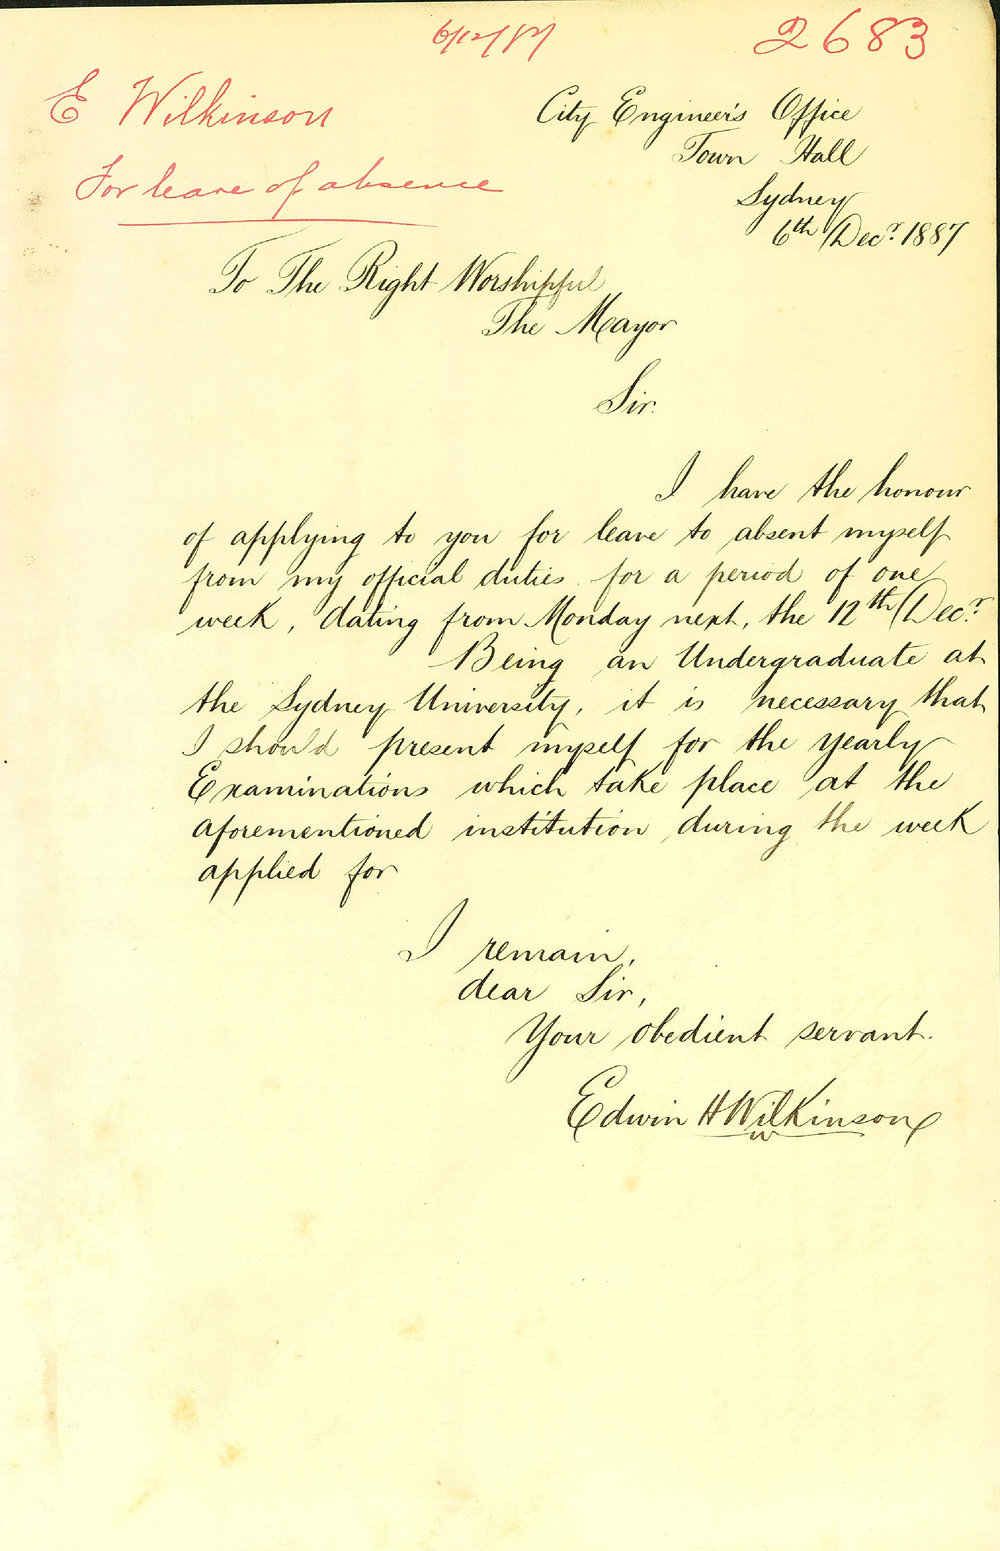 6/12/87
2683
E Wilkinson
For leave of absence
City Engineer's Office
Town Hall
Sydney
6th Decr. 1887
To The Right Worshipful
The Mayor
Sir.
I have the honour
of applying to you for leave to absent myself
from my official duties for a period of one
week, dating from Monday next, the 12th Decr.
Being an Undergraduate at
the Sydney University, it is necessary that
I should present myself for the Yearly
Examinations which take place at the
aforementioned institution during the week
applied for
I remain,
dear Sir,
Your obedient servant.
Edwin H Wilkinson